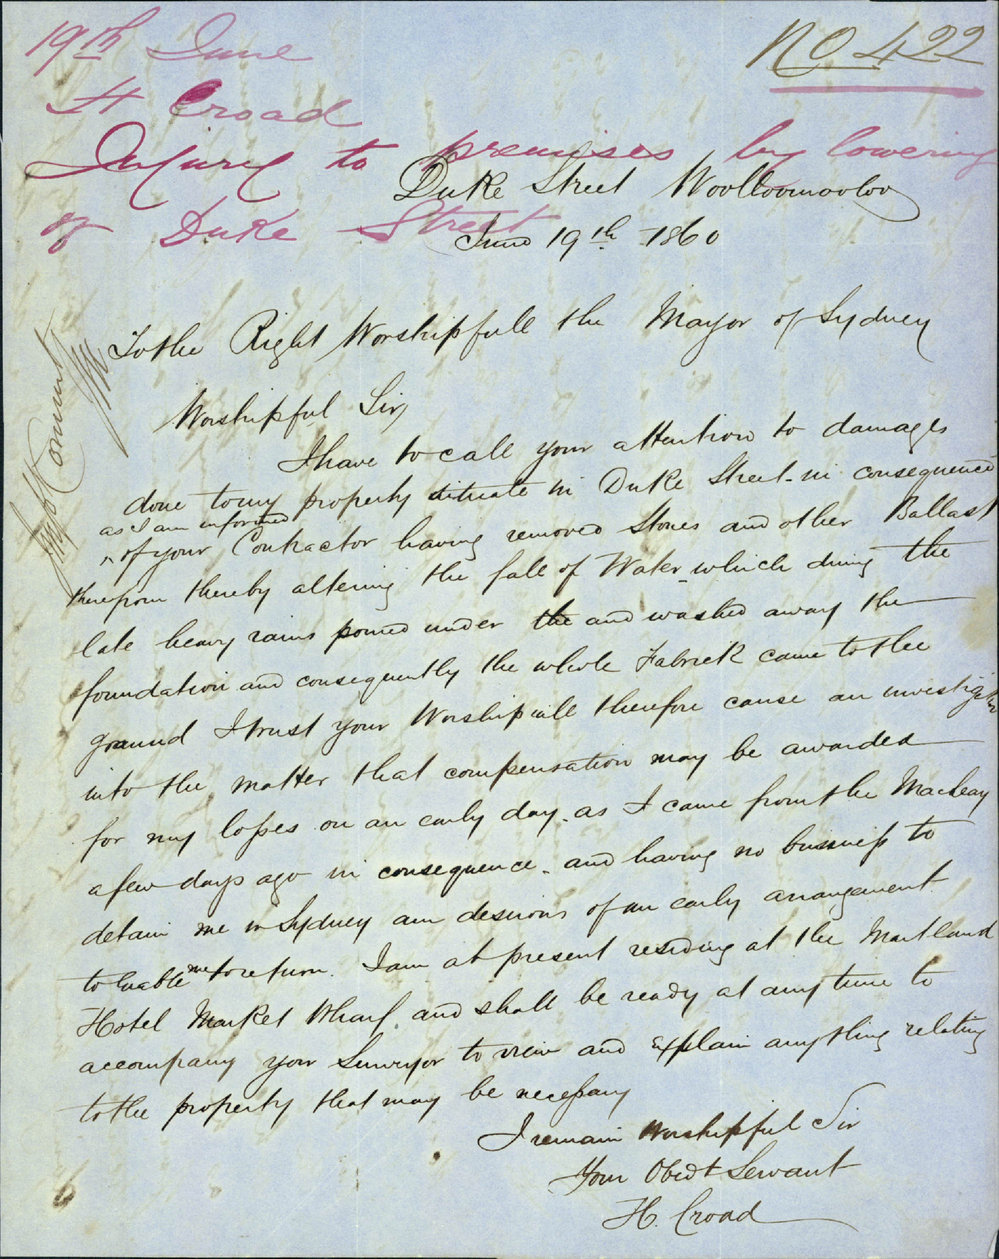 19th June
No 422
H Croad
Injury to premises by lowering
of Duke Street
Duke Street Woolloomooloo
June 19th 1860
To the Right Worshipfull the Mayor of Sydney
Worshipful Sir,
I have to call your attention to damages
done to my property situate in Duke Street - in consequence
as I am informed
^ of your Contractor having removed Stones and other Ballast
therefrom thereby altering the fall of Water which during the
late heavy rains poured under the and washed away the
foundation and consequently the whole Fabrick came to the
ground I trust your Worship will therefore cause an investigation
into the matter that compensation may be awarded
for my losses on an early day. as I came from the Macleay
a few days ago in consequence. and having no business to
detain me in Sydney am desirous of an early arrangement
to enable me to return. I am at present residing at the Maitland
Hotel Market Wharf. and shall be ready at any time to
accompany your Surveyor to view and explain anything relating
to the property that may be necessary
I remain Worshipful Sir
Your Obedt Servant
H. Croad